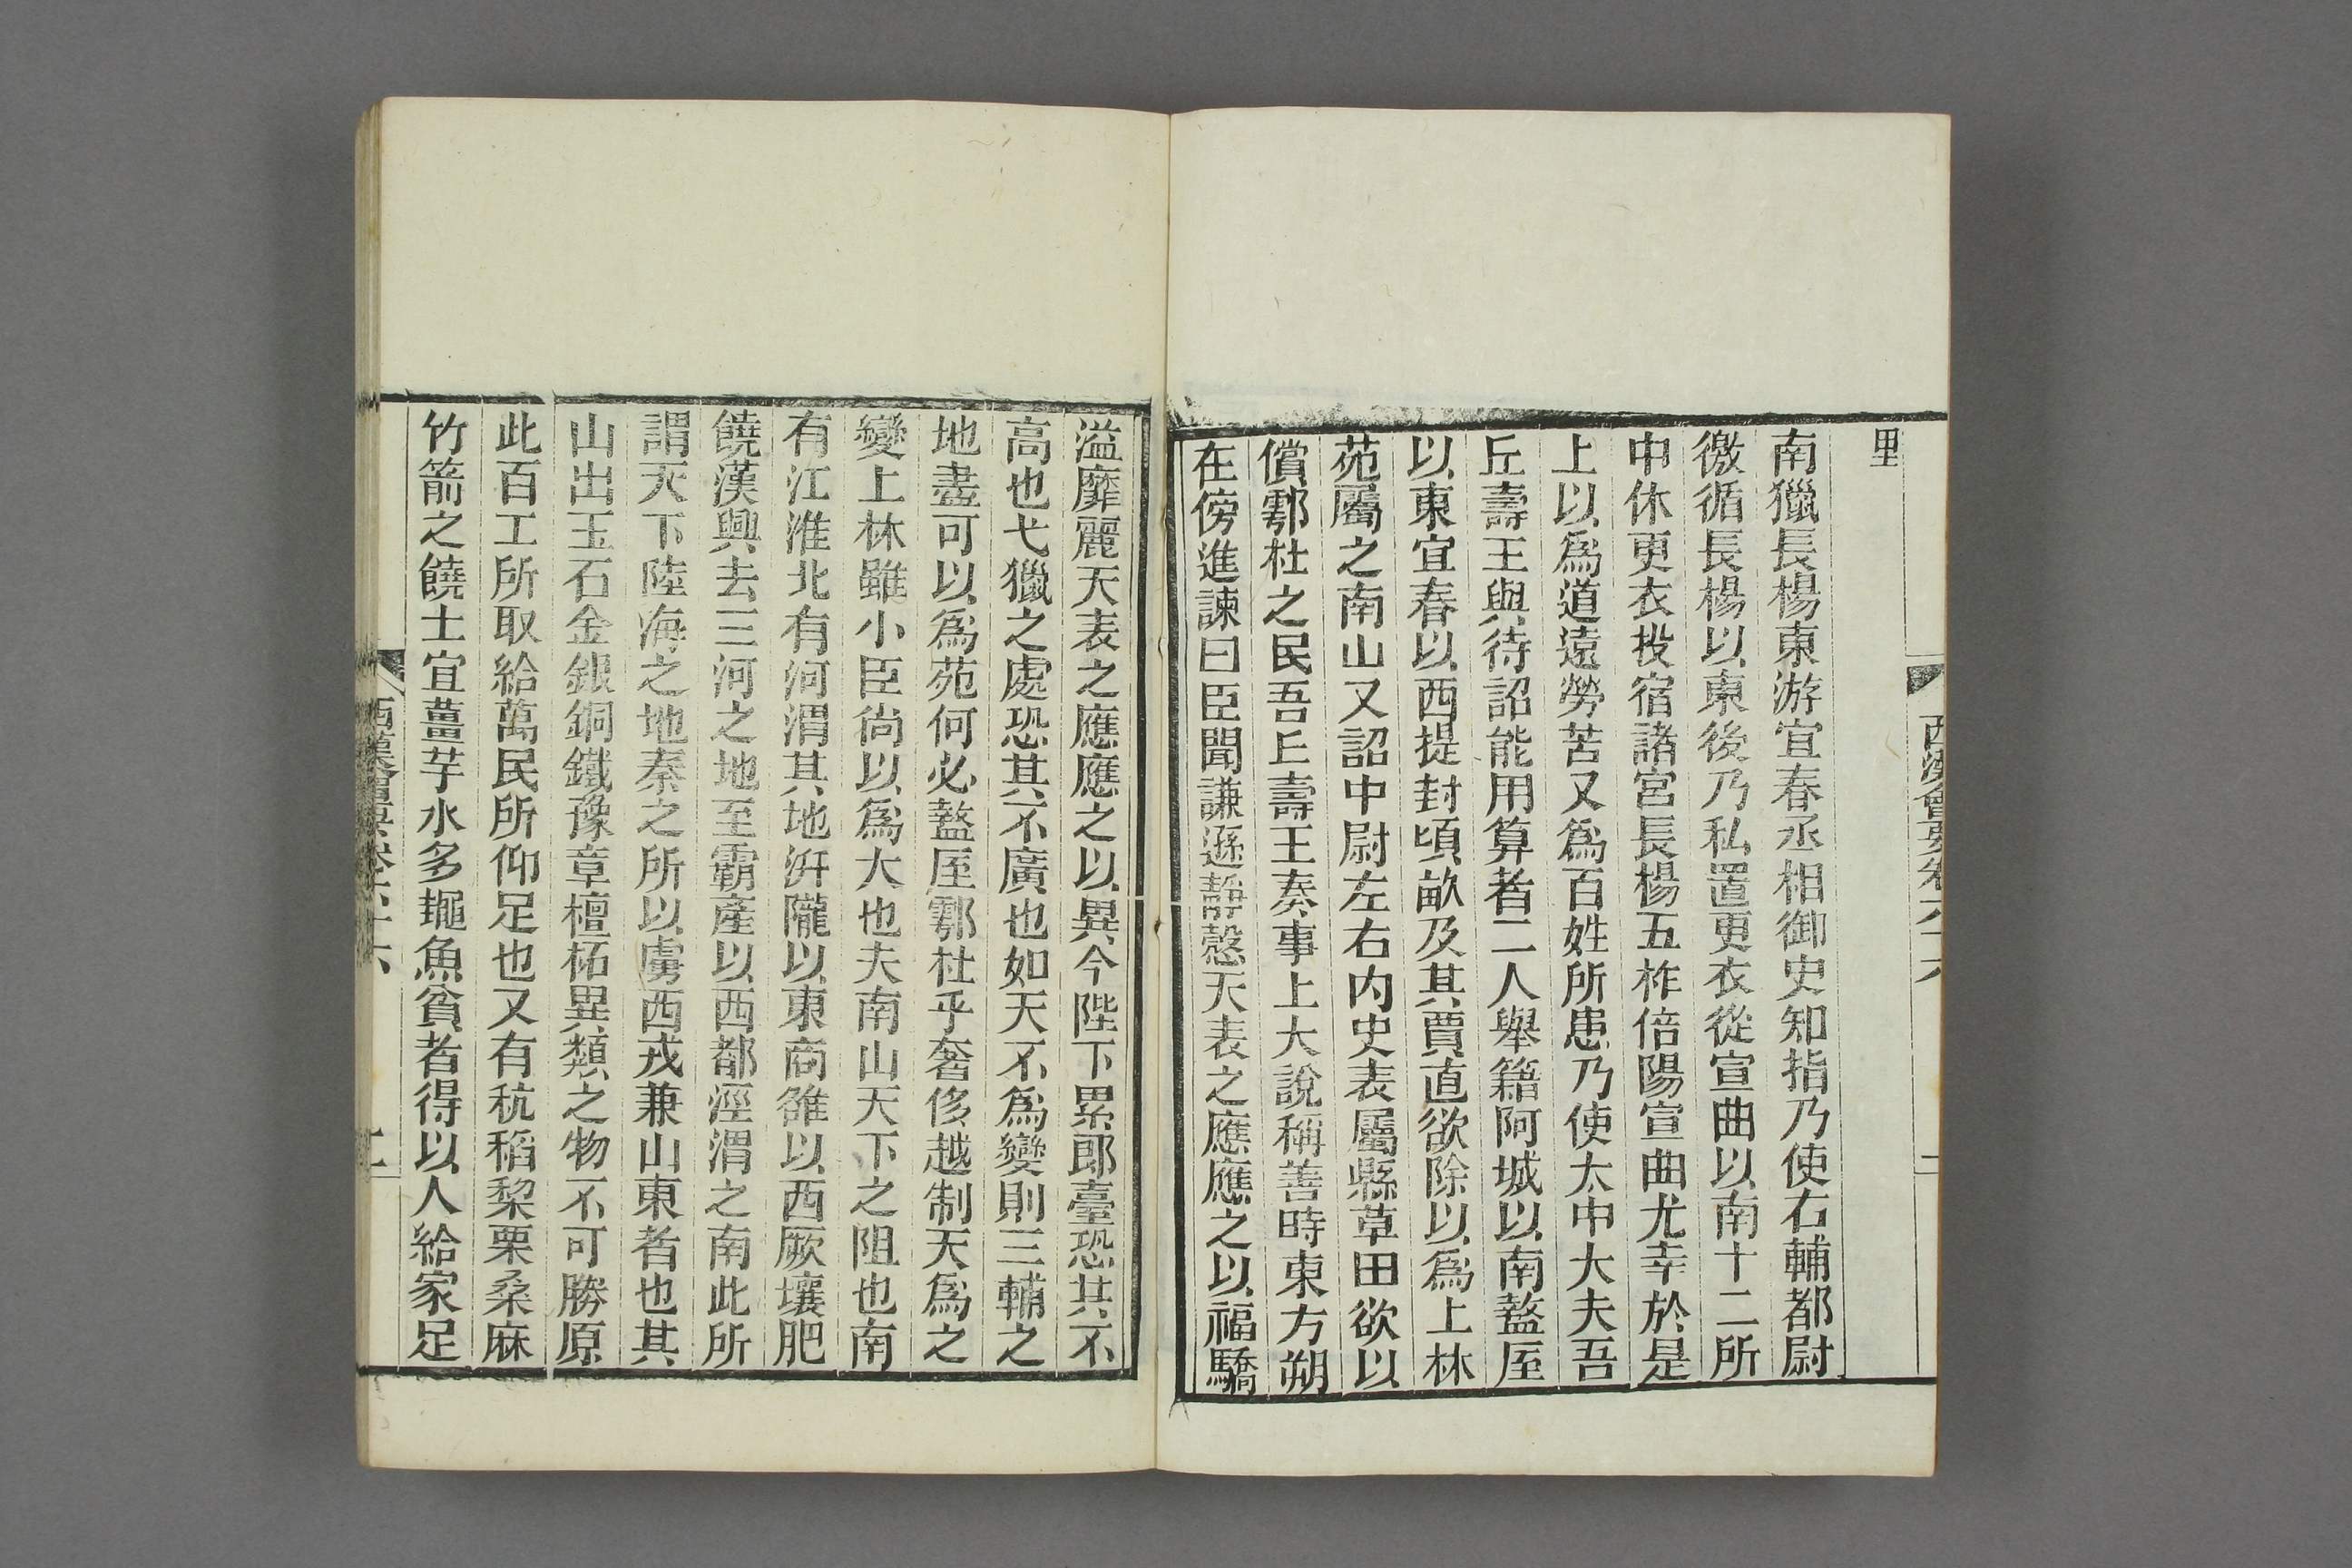 西漢會要卷六十六
里
南獵長楊東游宜春丞相御史知指乃使右輔都尉
徼循長楊以東後乃私置更衣從宣曲以南十二所
中休更衣投宿諸宮長楊五柞倍陽宣曲尤幸於是
上以爲道遠勞苦又爲百姓所患乃使太中大夫吾
丘壽王與待詔能用算者二人舉籍阿城以南盩厔
以東宜春以西提封頃畝及其賈直欲除以爲上林
苑屬之南山又詔中尉左右內史表屬縣草田欲以
償鄠杜之民吾丘壽王奏事上大說稱善時東方朔
在傍進諫曰臣聞謙遜靜愨天表之應應之以福驕
溢靡麗天表之應應之以異今陛下累郎臺恐其不
高也弋獵之處恐其不廣也如天不爲變則三輔之
地盡可以爲苑何必盩厔鄠杜乎奢侈越制天爲之
變上林雖小臣尚以爲大也夫南山天下之阻也南
有江淮北有河渭其地汧隴以東商雒以西厥壤肥
饒漢興去三河之地至霸產以西都涇渭之南此所
謂天下陸海之地秦之所以虜西戎兼山東者也其
山出玉石金銀銅鐵豫章檀柘異類之物不可勝原
此百工所取給萬民所仰足也又有秔稻棃栗桑麻
竹箭之饒土宜薑芋水多鼃魚貧者得以人給家足
西漢會要卷六十六